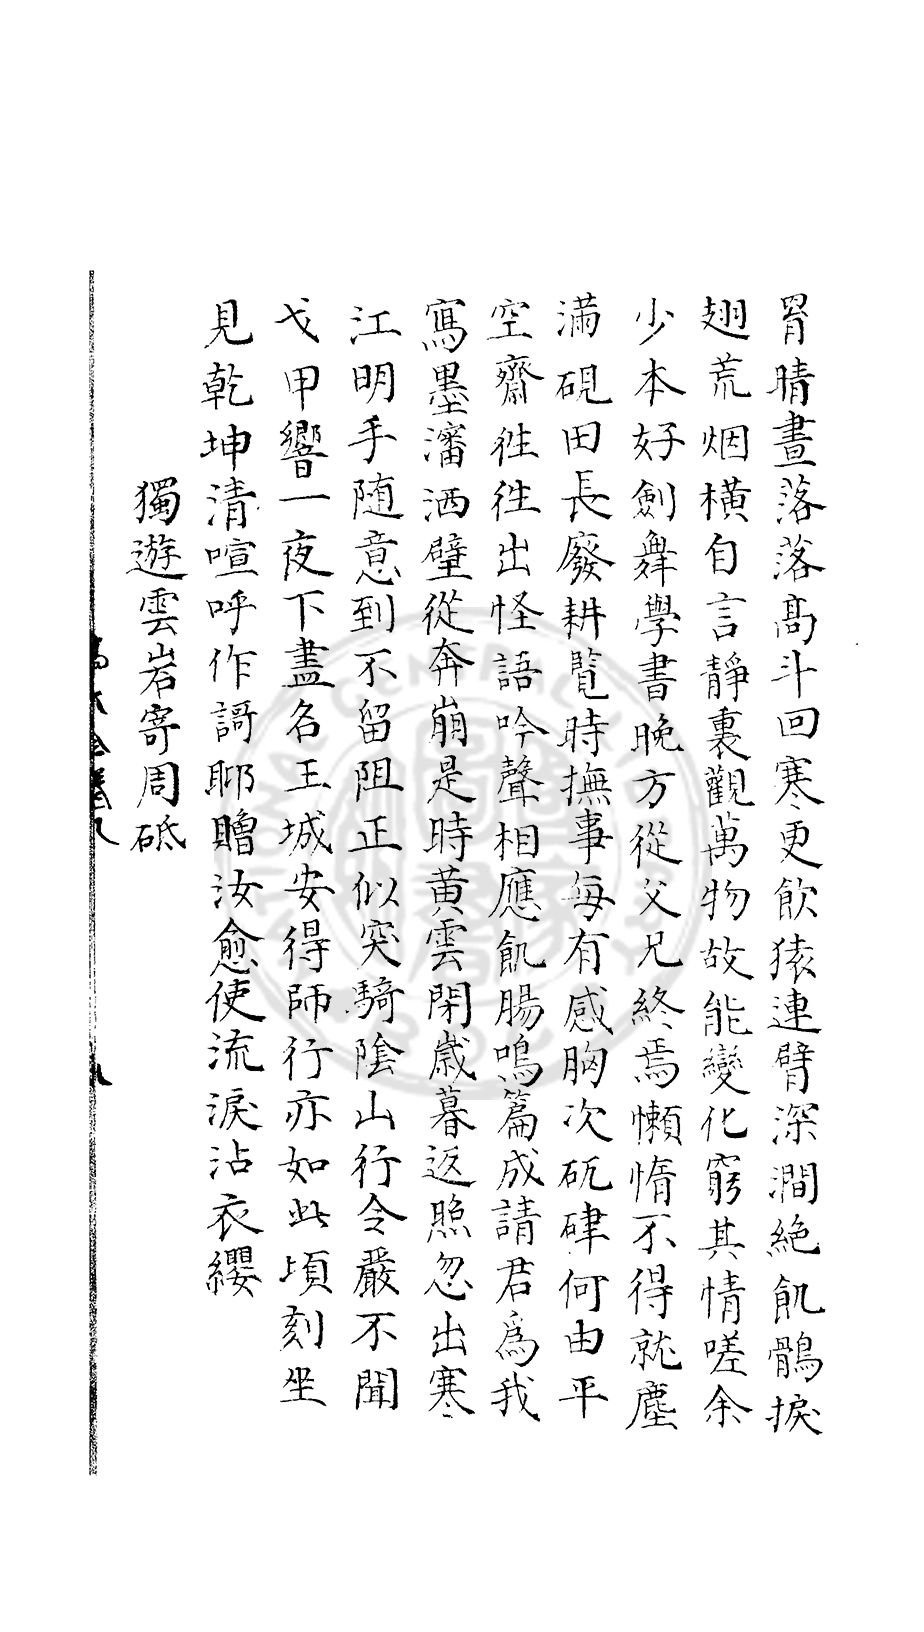 胃晴晝落落高斗回寒更飲猿連臂深澗絶飢鶻捩
翅荒烟橫自言靜裏觀萬物故能變化窮其情嗟余
少本好劍舞學書晚方從父兄終焉懶惰不得就塵
滿硯田長廢耕覽時撫事每有感胸次砡硉何由平
空齋徃徃出怪語吟聲相應飢腸鳴篇成請君爲我
寫墨瀋洒壁從奔崩是時黃雲閉歲暮返照忽出寒
江明手随意到不留阻正似突騎陰山行令嚴不聞
戈甲響一夜下盡名王城安得師行亦如此頃刻坐
見乾坤清喧呼作謌聊贈汝愈使流淚沾衣纓
獨遊雲岩寄周砥